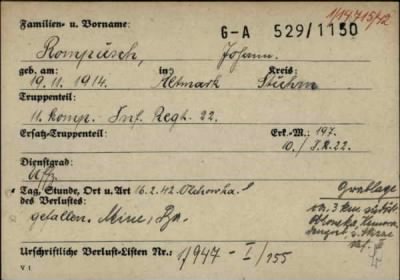 Familien- u. Vorname: G-A 529/1150 1/19715/42
Rompusch, Johann.
geb. am: in Kreis:
19.11.1914. Altmark Stuhm
Truppenteil:
11. Komp. Inf. Regt. 22.
Ersatz-Truppenteil: Erk.-M.: 197.
10./I.R.22.
Dienstgrad:
Uffz.
Tag, Stunde, Ort u. Art 16.2.42. Grablage
des Verlustes: 3 km
gefallen. Mine,
Urschriftliche Verlust-Listen Nr.: 1/947-I/155
V 1